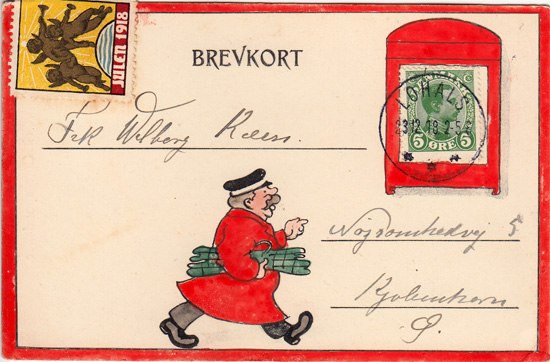 JULEN 1918
BREVKORT
LOHALS
23.12.18.4-5
5 ØRE 5
Frk Valborg
Nøjsomhedvej 5
Kjøbenhavn
Ø.